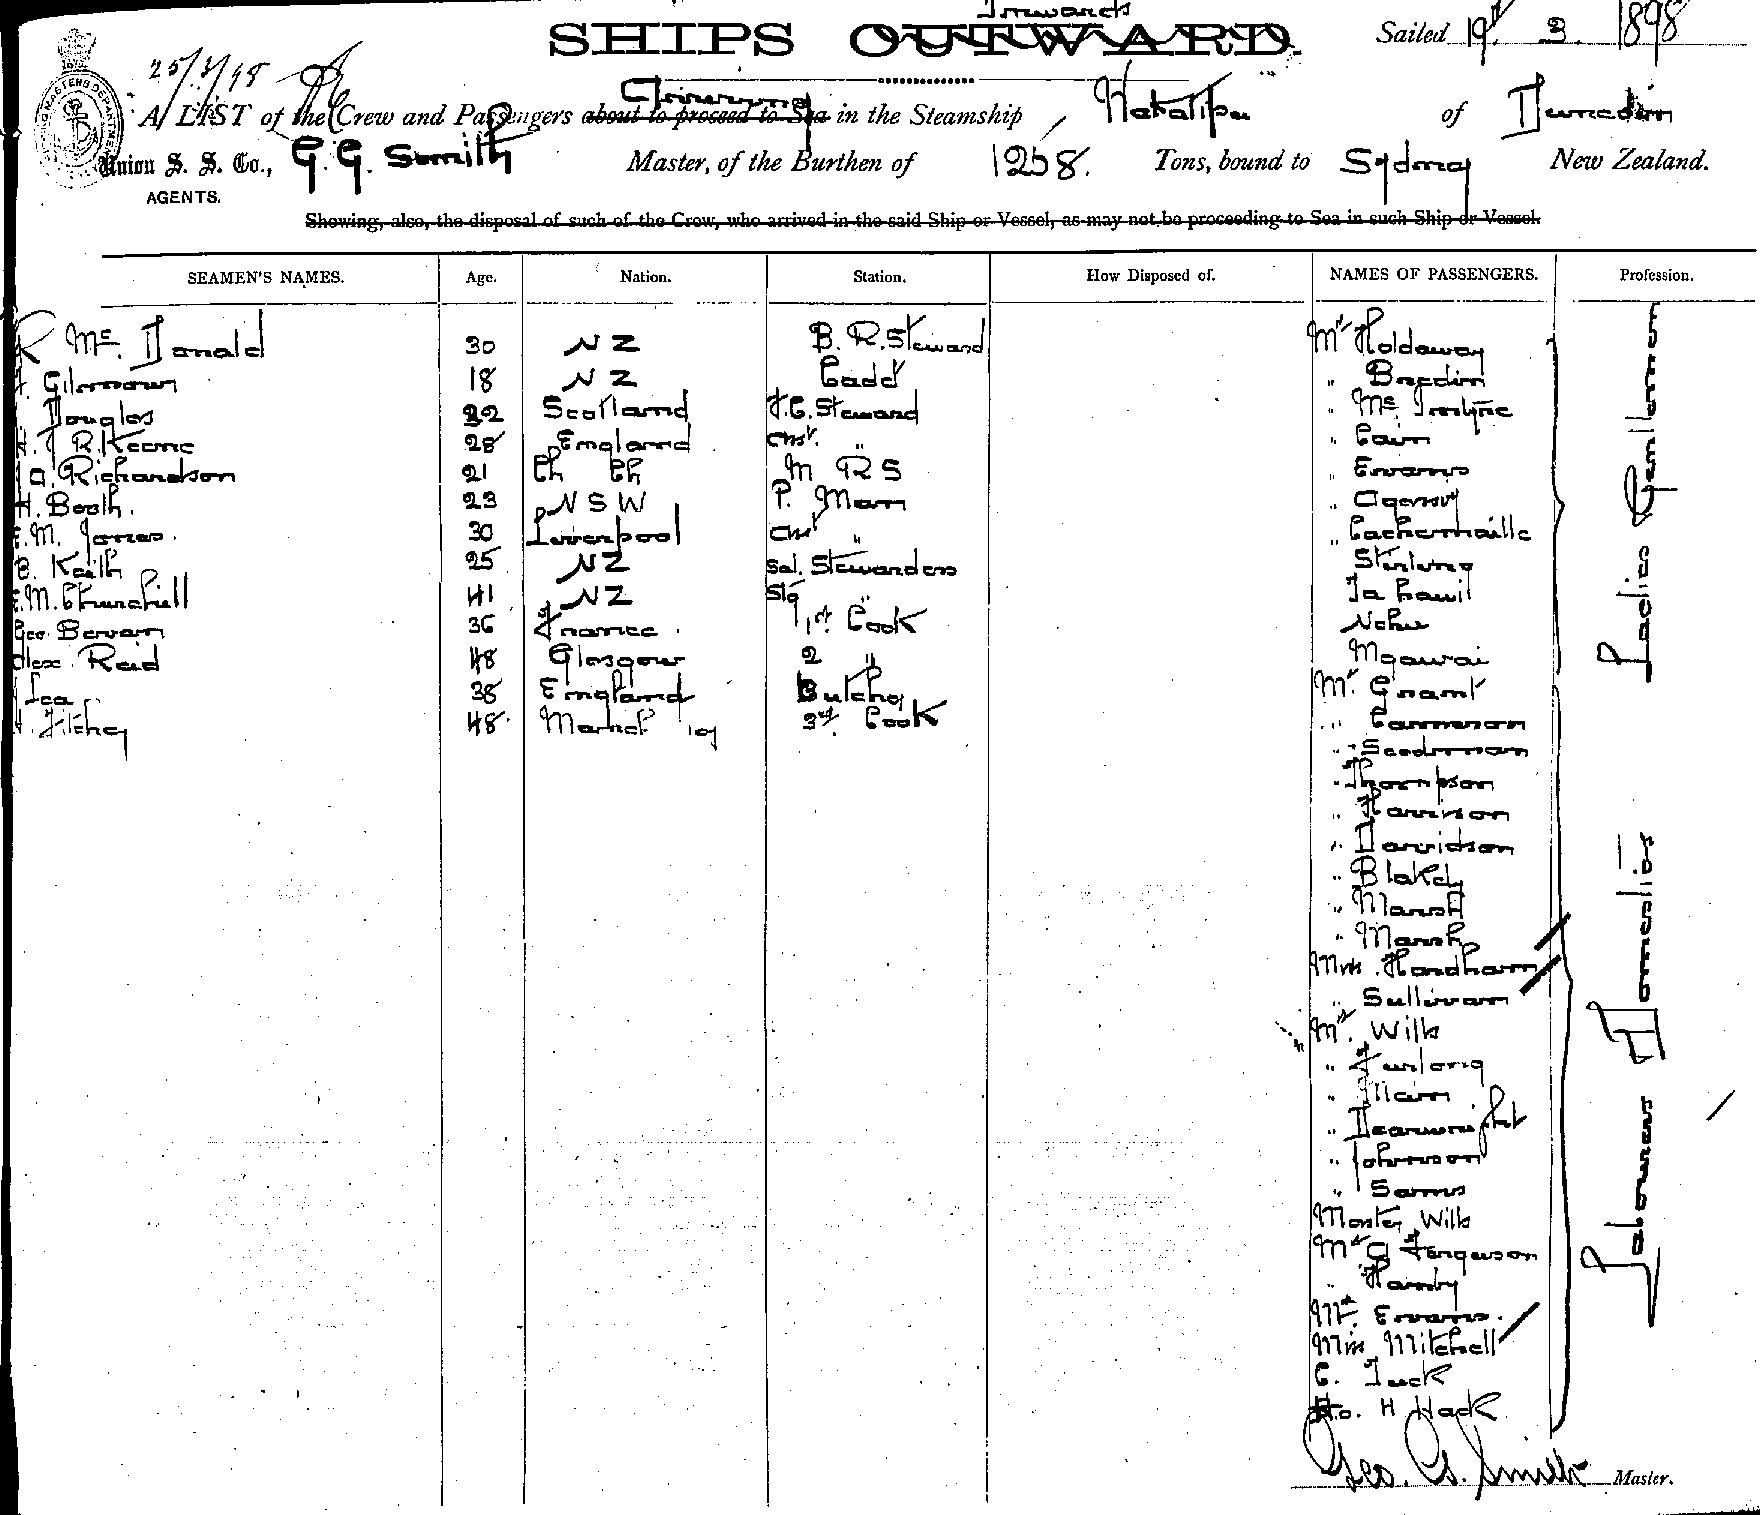 Inwards
SHIPS OUTWARD.
Sailed 19th 3. 1898
25/3/98
A LIST of the Crew and Passengers about to proceed to Sea in the Steamship Wakatipu of Dunedin
Arriving
Union S. S. Co., G. G. Smith Master, of the Burthen of 1258. Tons, bound to Sydney New Zealand.
AGENTS.
Showing, also, the disposal of such of the Crew, who arrived in the said Ship or Vessel, as may not be proceeding to Sea in such Ship or Vessel.
SEAMEN'S NAMES. Age. Nation. Station. How Disposed of. NAMES OF PASSENGERS. Profession.
R McDonald 30 NZ B. R. Steward
Gilmour 18 NZ Cadd
Douglas 22 Scotland F.C. Steward
R. Keane 28 England Ast. "
Richardson 21 Ch Ch M R S
H. Booth. 23 NSW P. Man
M. Jones. 30 Liverpool Ast "
B. Keith 25 NZ Sal. Stewardess
E. M. Churchill 41 NZ Stg "
Geo. Bevan 36 France. 1st Cook
Alex. Reid 48 Glasgow 2 "
Lea 38 England Butcher
Fitchey 48. 3rd. Cook
Mr Holdaway
" Bredin
" McIntyre
" Cain
" Evans
" Cachemaille
Stirling
Ngawai
Mr. Grant
" Cameron
" Seedsman
" Thompson
" Harrison
" Davidson
" Blakely
" Marsh
" Marsh
Mrs. Hardham
" Sullivan
Mr. Wills
" Furlong
" Johnson
" Sams
Master Wills
Mr G Ferguson
" Hamby
Mr. Evans.
Miss Mitchell
C. Tuck
H Hack
Ladies Gentlemen
Labourers Domestics
Geo. G. Smith Master.